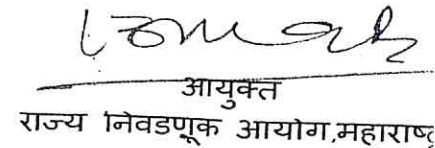 आयुक्त
राज्य निवडणूक आयोग,महाराष्ट्र